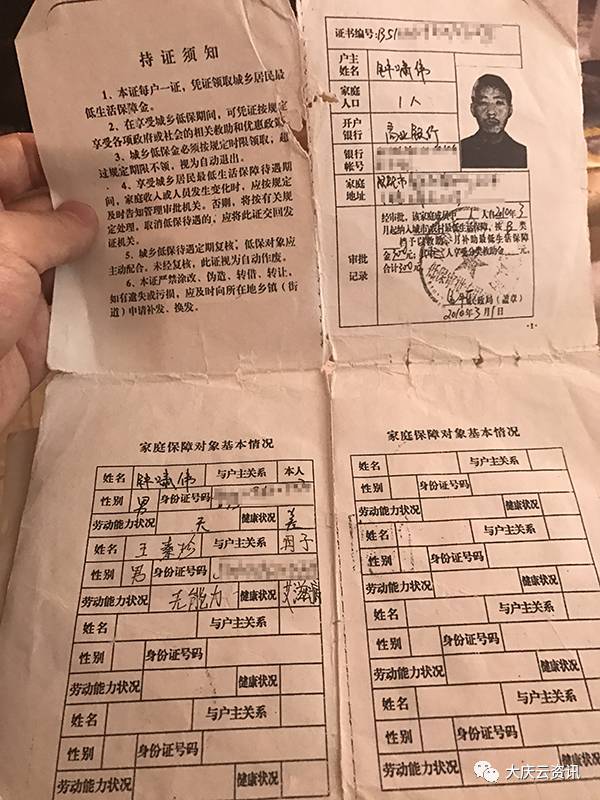 持证须知
1、本证每户一证，凭证领取城乡居民最
低生活保障金。
2、在享受城乡低保期间，可凭证按规定
享受各项政府或社会的相关救助和优惠政策。
3、城乡低保金必须按规定时限领取，超
过规定期限不领，视为自动退出。
4、享受城乡居民最低生活保障待遇期
间，家庭收入或人员发生变化时，应按规定
及时告知管理审批机关。否则，将按有关规
定处理。取消低保待遇的，应将此证交回发
证机关。
5、城乡低保待遇定期复核，低保对象应
主动配合，未经复核，此证视为自动作废。
6、本证严禁涂改、伪造、转借、转让，
如有遗失或污损，应及时向所在地乡镇（街
道）申请补发、换发。
证书编号：B51
户主
姓名
伟
家庭
人口
1人
开户
银行
商业银行
银行
帐号
家庭
地址
市
审批
记录
经审批，该家庭成员中 人自2010年3
月起纳入城市农村最低生活保障，按B类
合计300元。
民政局（盖章）
2010年3月1日
-1-
家庭保障对象基本情况
姓名 伟 与户主关系 本人
性别 男 身份证号码
劳动能力状况 无 健康状况 差
姓名 王 松 与户主关系 母子
性别 男 身份证号码
劳动能力状况 无能力 健康状况 艾滋病
姓名 与户主关系
性别 身份证号码
劳动能力状况 健康状况
姓名 与户主关系
性别 身份证号码
劳动能力状况 健康状况
家庭保障对象基本情况
姓名 与户主关系
性别 身份证号码
劳动能力状况 健康状况
姓名 与户主关系
性别 身份证号码
劳动能力状况 健康状况
姓名 与户主关系
性别 身份证号码
劳动能力状况 健康状况
姓名 与户主关系
性别 身份证号码
劳动能力状况 健康状况
大庆云资讯